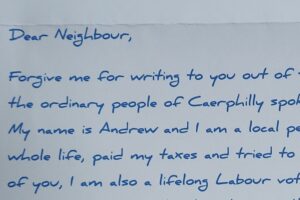 Dear Neighbour,
Forgive me for writing to you out of
the ordinary people of Caerphilly
My name is Andrew and I am a local
whole life, paid my taxes and tried to
of you, I am also a lifelong Labour